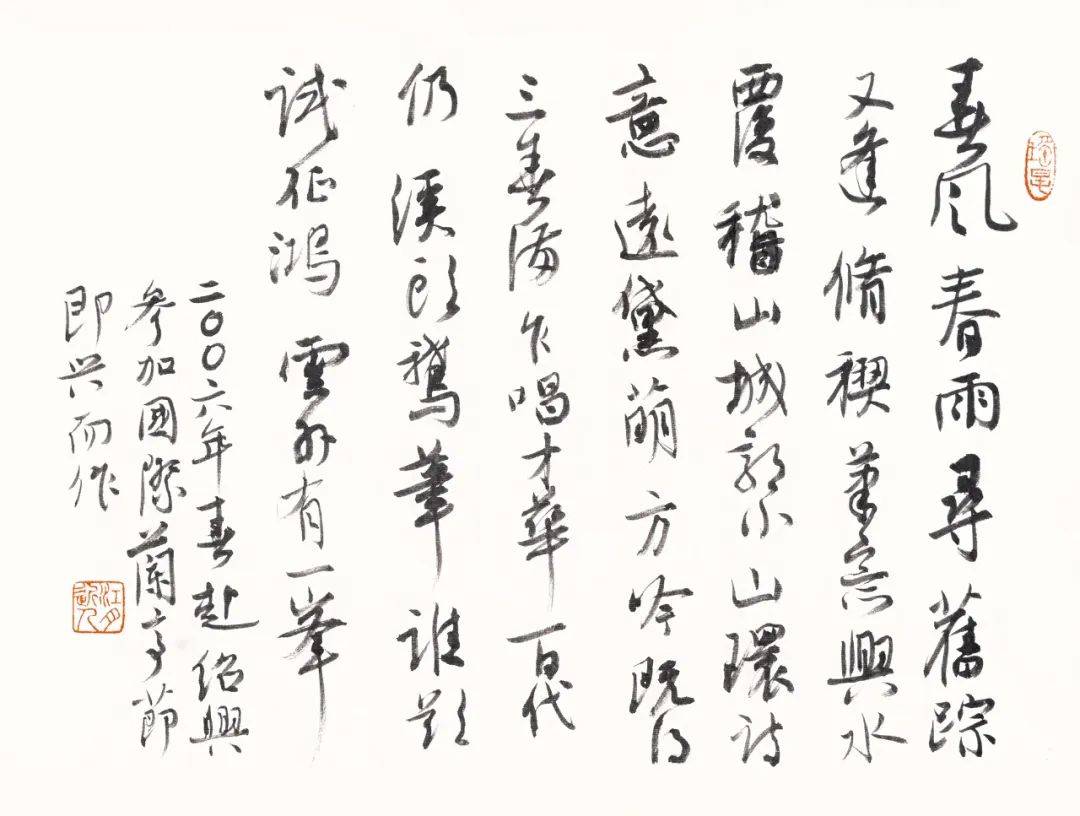 春风春雨尋舊踪
又逢脩禊筆意興水
覆稽山城郭小山環詩
意遠黛萌方吟既
三春满乍唱才華百代
仍溪頭鵝筆誰欲
試征鴻雲外有一峯
二〇〇六年春赴绍興
參加國際蘭亭節
即兴而作